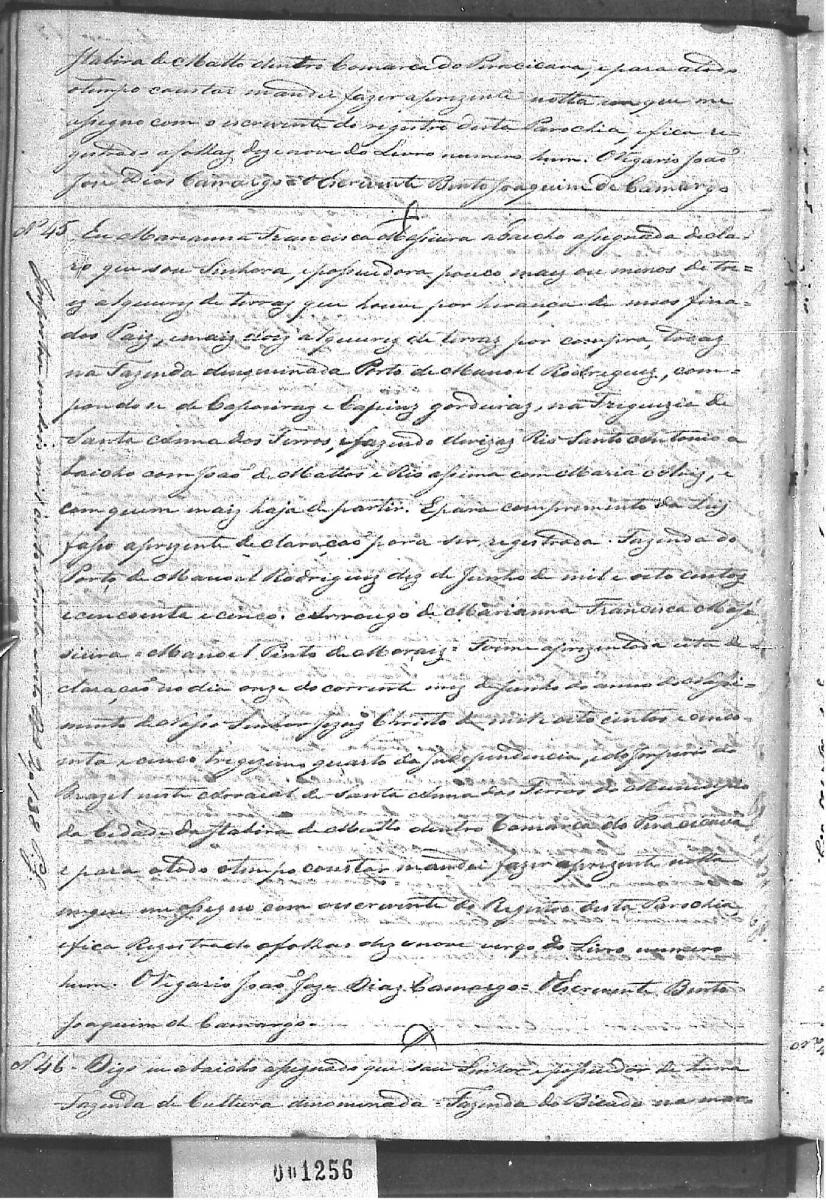 Itabira de Matto dentro Comarca do Piracicava, e para a todo
o tempo constar mandei fazer aprezente notta em que me
assigno com o escrevente do registro desta Parochia, e fica re=
gistrado a folhas deze nove do Livro numero hum. O Vigario João
Jose Dias Camargo = O Escrevente Bento Joaquim de Camargo
Nº 45 Eu Marianna Francisca a baicho assignada decla=
ro que sou Senhora, e possuidora pouco mais ou menos de tre=
z alqueirez de terraz que houve por herança de meos fina=
dos Paiz, e maiz doiz alqueirez de terraz por compra, todaz
na Fazenda denominada Porto de Manoel Rodriguez, com=
pondo se de Capoeiraz e Capinz gorduraz, na Freguezie de
Santa Anna dos Ferros, e fazendo divizaz Rio Santo Antonio a
baicho com João de Mattos e Rio assima com Maria, e
com quem maiz haja de partir. E para comprimento da Lei
fasso aprezente declaração para ser registrada. Fazenda do
Porto de Manoel Rodriguez dez de Junho de mil e oito centos
e cincoenta e cinco. Arrougo de Marianna Francisca
= Manoel Pinto de Moraiz = Foi me aprezentada esta de=
claração no dia onze do corrente mez de Junho do anno do Nassi=
mento de Nosso Senhor Jezuz Christo de mil e oito centos e cinco=
enta e cinco, trigezimo quarto da Independencia, e do Imperio do
Brazil neste Arraial de Santa Anna dos Ferros do Municipio
da Cidade da Itabira de Matto dentro Comarca do Piracicava
e para a todo o tempo constar mandei fazer aprezente notta
em que me assigno com o escrevente do Registro desta Parochia,
e fica Registrado a folhas deze nove vergo do Livro numero
hum. O Vigario João Joze Diaz Camargo = O Escrevente Bento
Joaquim de Camargo =
Nº 46 - Digo eu abaicho assignado que sou Senhor e possuidor de huma
Fazenda de Cultura denominada = Fazenda do na
001256